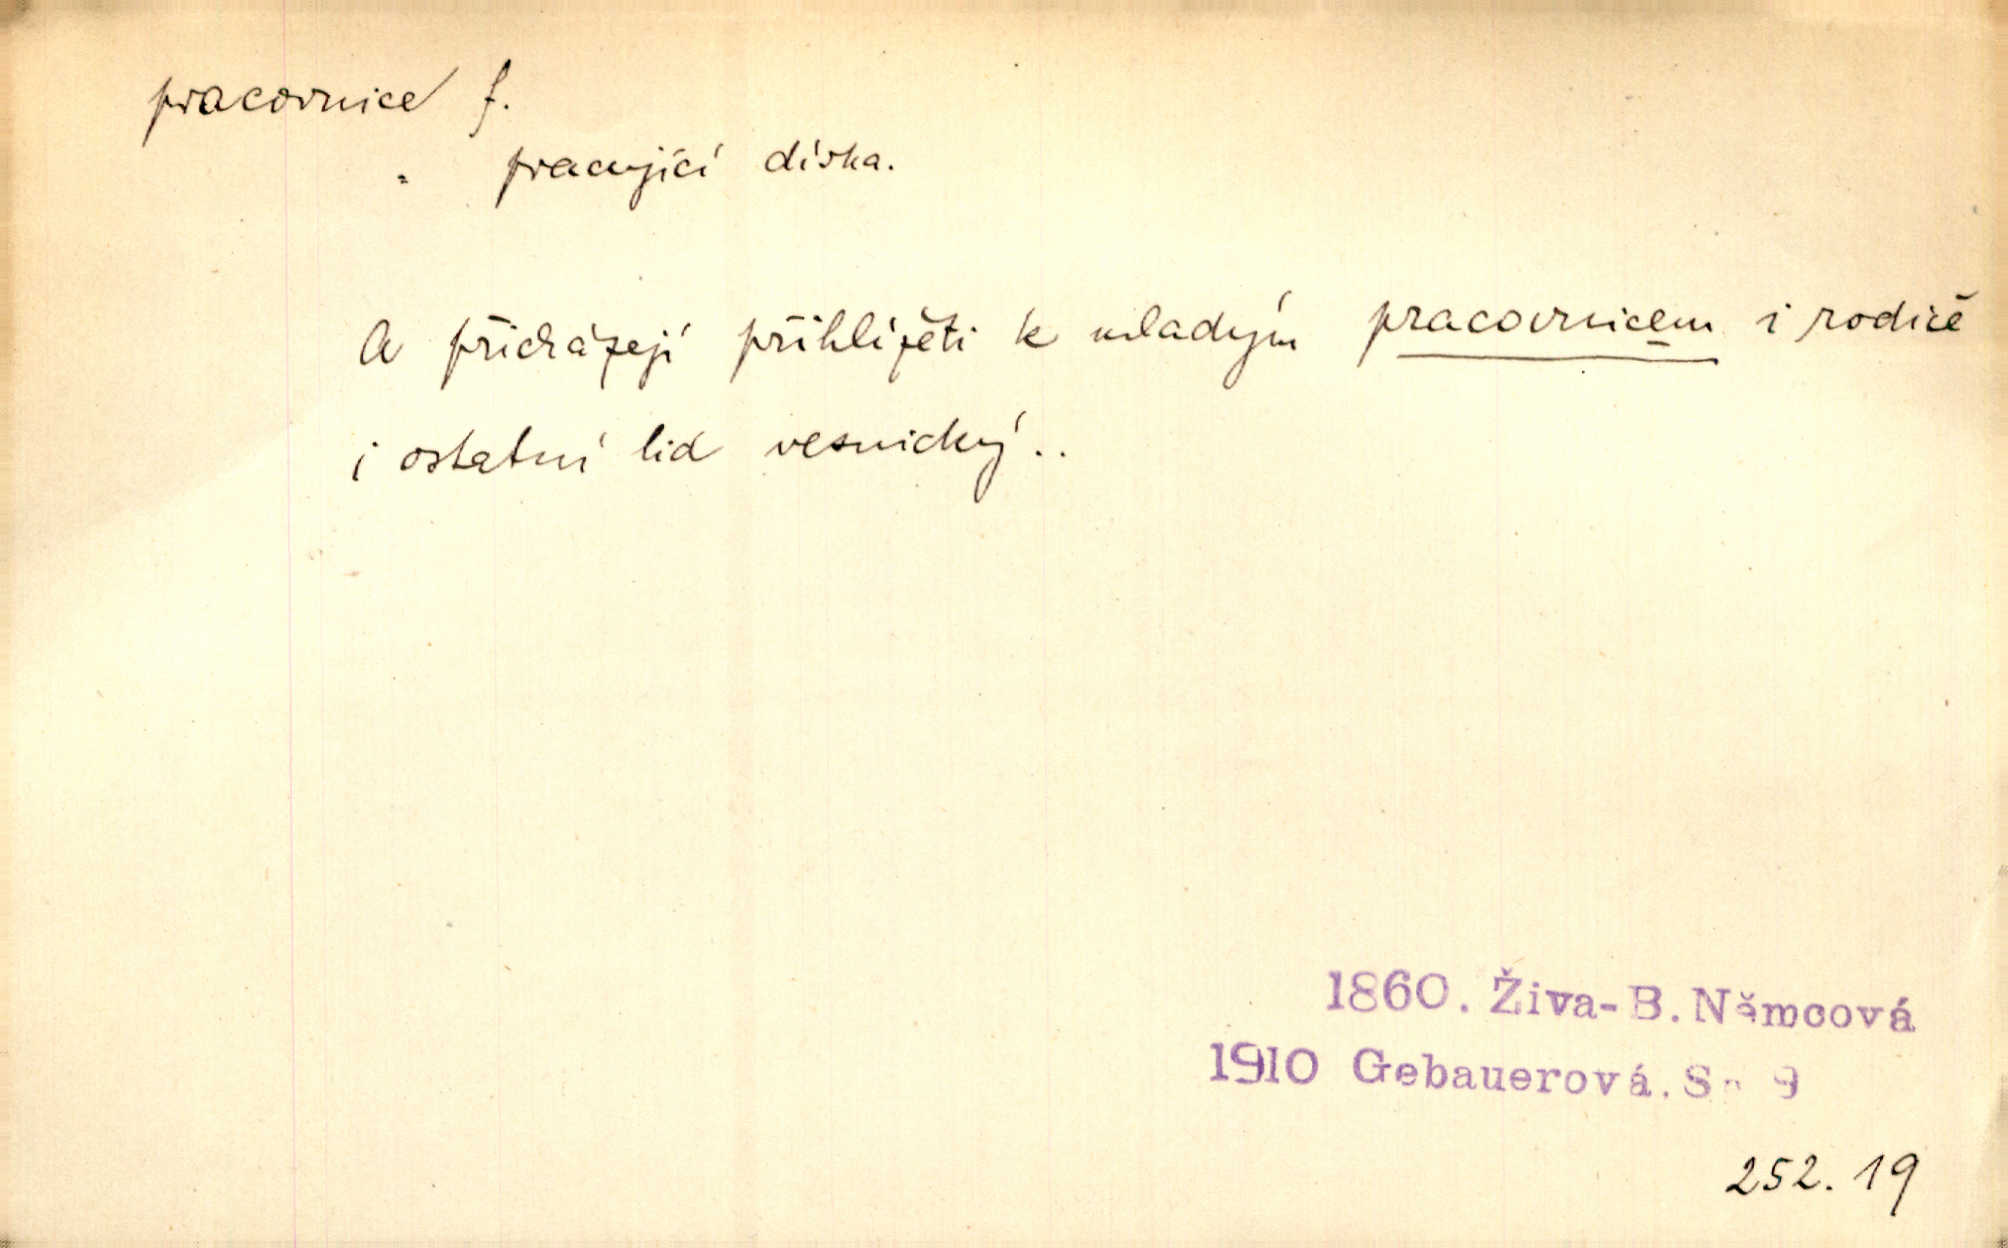 pracovnice f.
pracující dívka.
A přicházejí přihlížeti k mladým pracovnicem i rodiče
i ostatní lid vesnický..
1860. Živa-B. Němcová
1910 Gebauerová. 9
252. 19